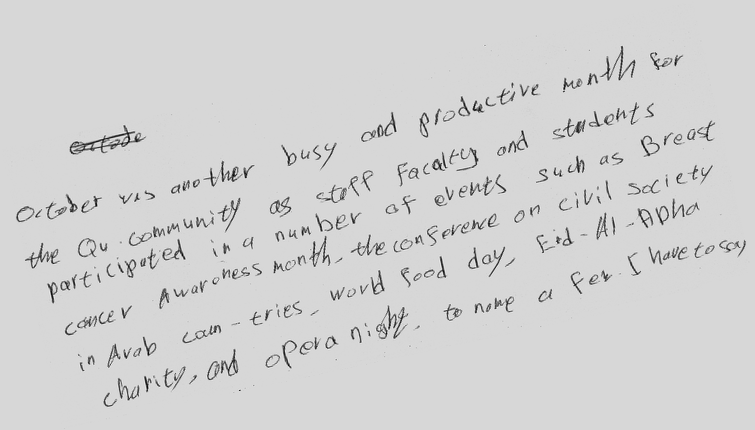 October was another busy and productive month for
the Qu. community as staff Faculty and students
participated in a number of events such as Breast
cancer Awareness month, the conference on civil society
in Arab coun-tries, world food day, Eid-Al-Adha
charity, and opera night, to name a few. I have to say